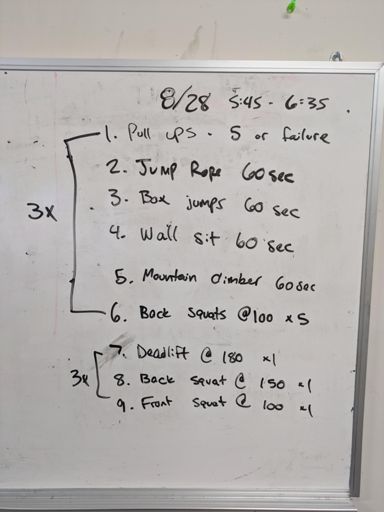 8/28 5:45 - 6:35
1. Pull ups - 5 or failure
2. Jump Rope 60 sec
3. Box jumps 60 sec
3x
4. Wall sit 60 sec
5. Mountain climber 60 sec
6. Back Squats @100 x5
7. Deadlift @ 180 x1
3x
8. Back Squat @ 150 x1
9. Front Squat @ 100 x1